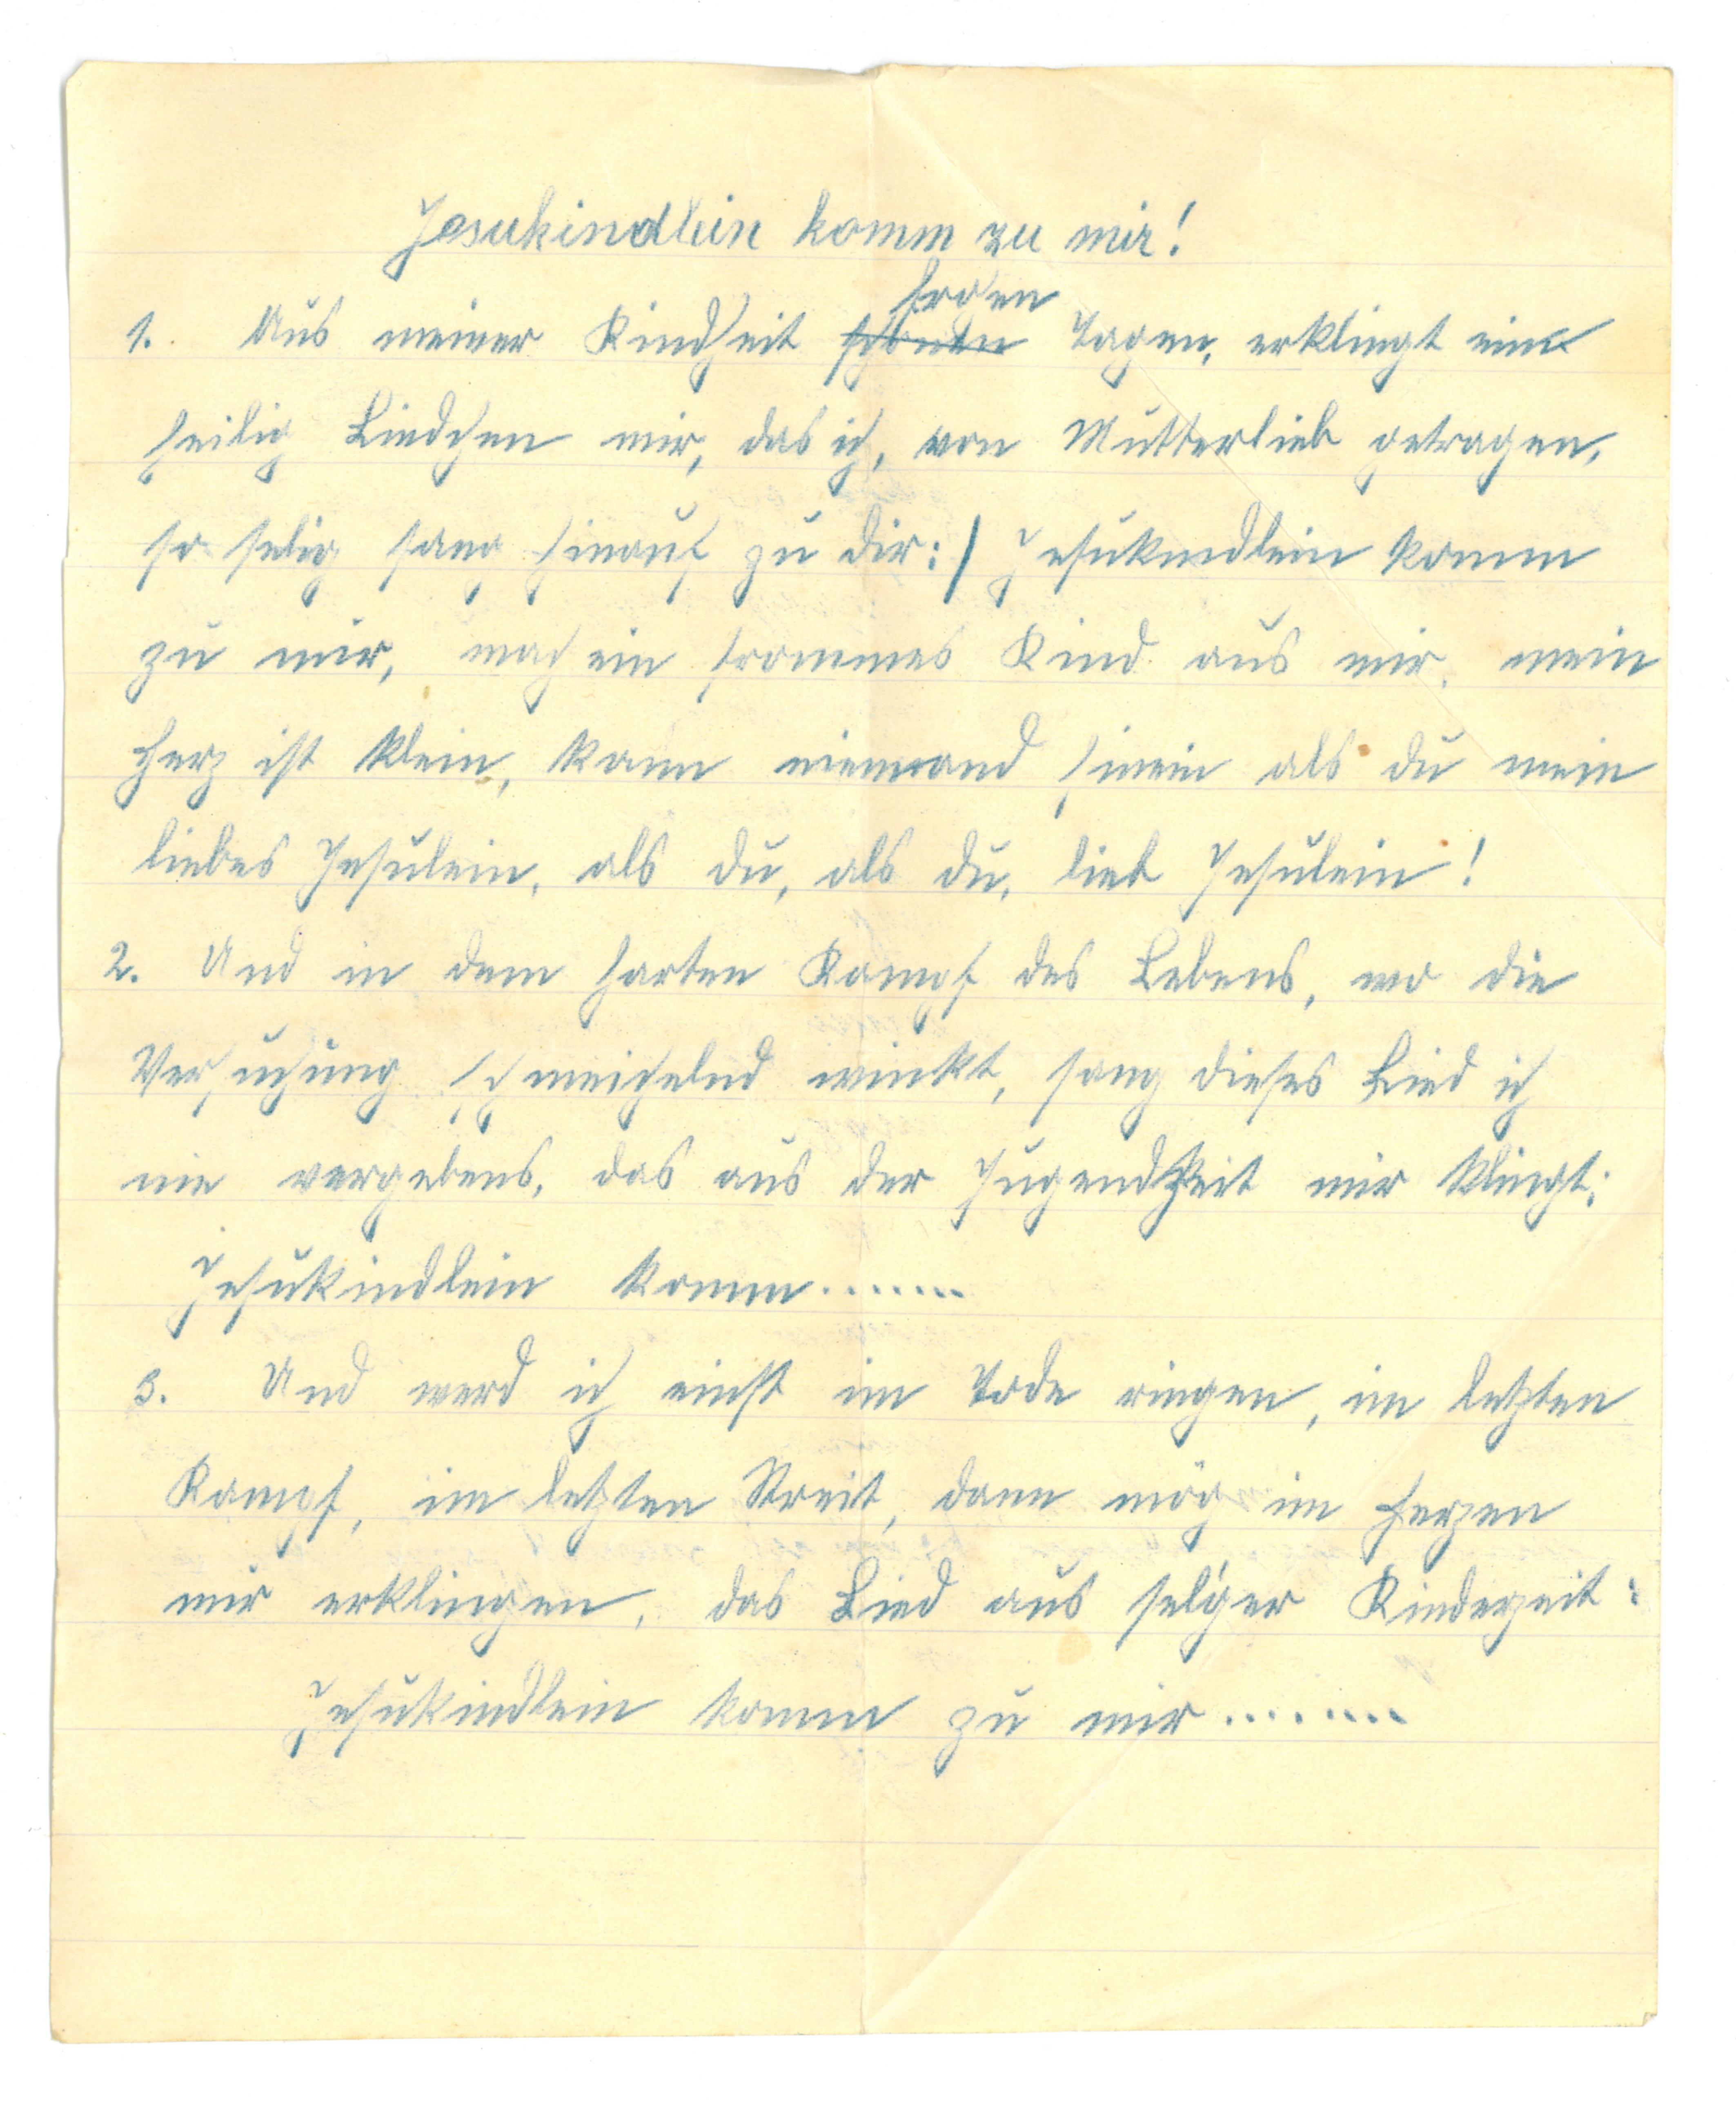 Jesukindlein komm zu mir!
frohen
1. Aus meiner Kindheit schönen Tagen, erklingt ein
heilig Liedchen mir, das ich, von Mutterlieb getragen,
so selig sang hinauf zu dir: / Jesukindlein komm
zu mir, mach ein frommes Kind aus mir, mein
Herz ist klein, kann niemand hinein als du mein
liebes Jesulein, als du, als du, lieb Jesulein!
2. Und in dem harten Kampf des Lebens, wo die
Versuchung schmeichelnd winkt, sang dieses Lied ich
nie vergebens, das aus der Jugendzeit mir klingt:
Jesukindlein komm.......
3. Und werd ich einst im Tode ringen, im letzten
Kampf, im letzten Streit, dann mög im Herzen
mir erklingen, das Lied aus sel'ger Kinderzeit:
Jesukindlein komm zu mir.......